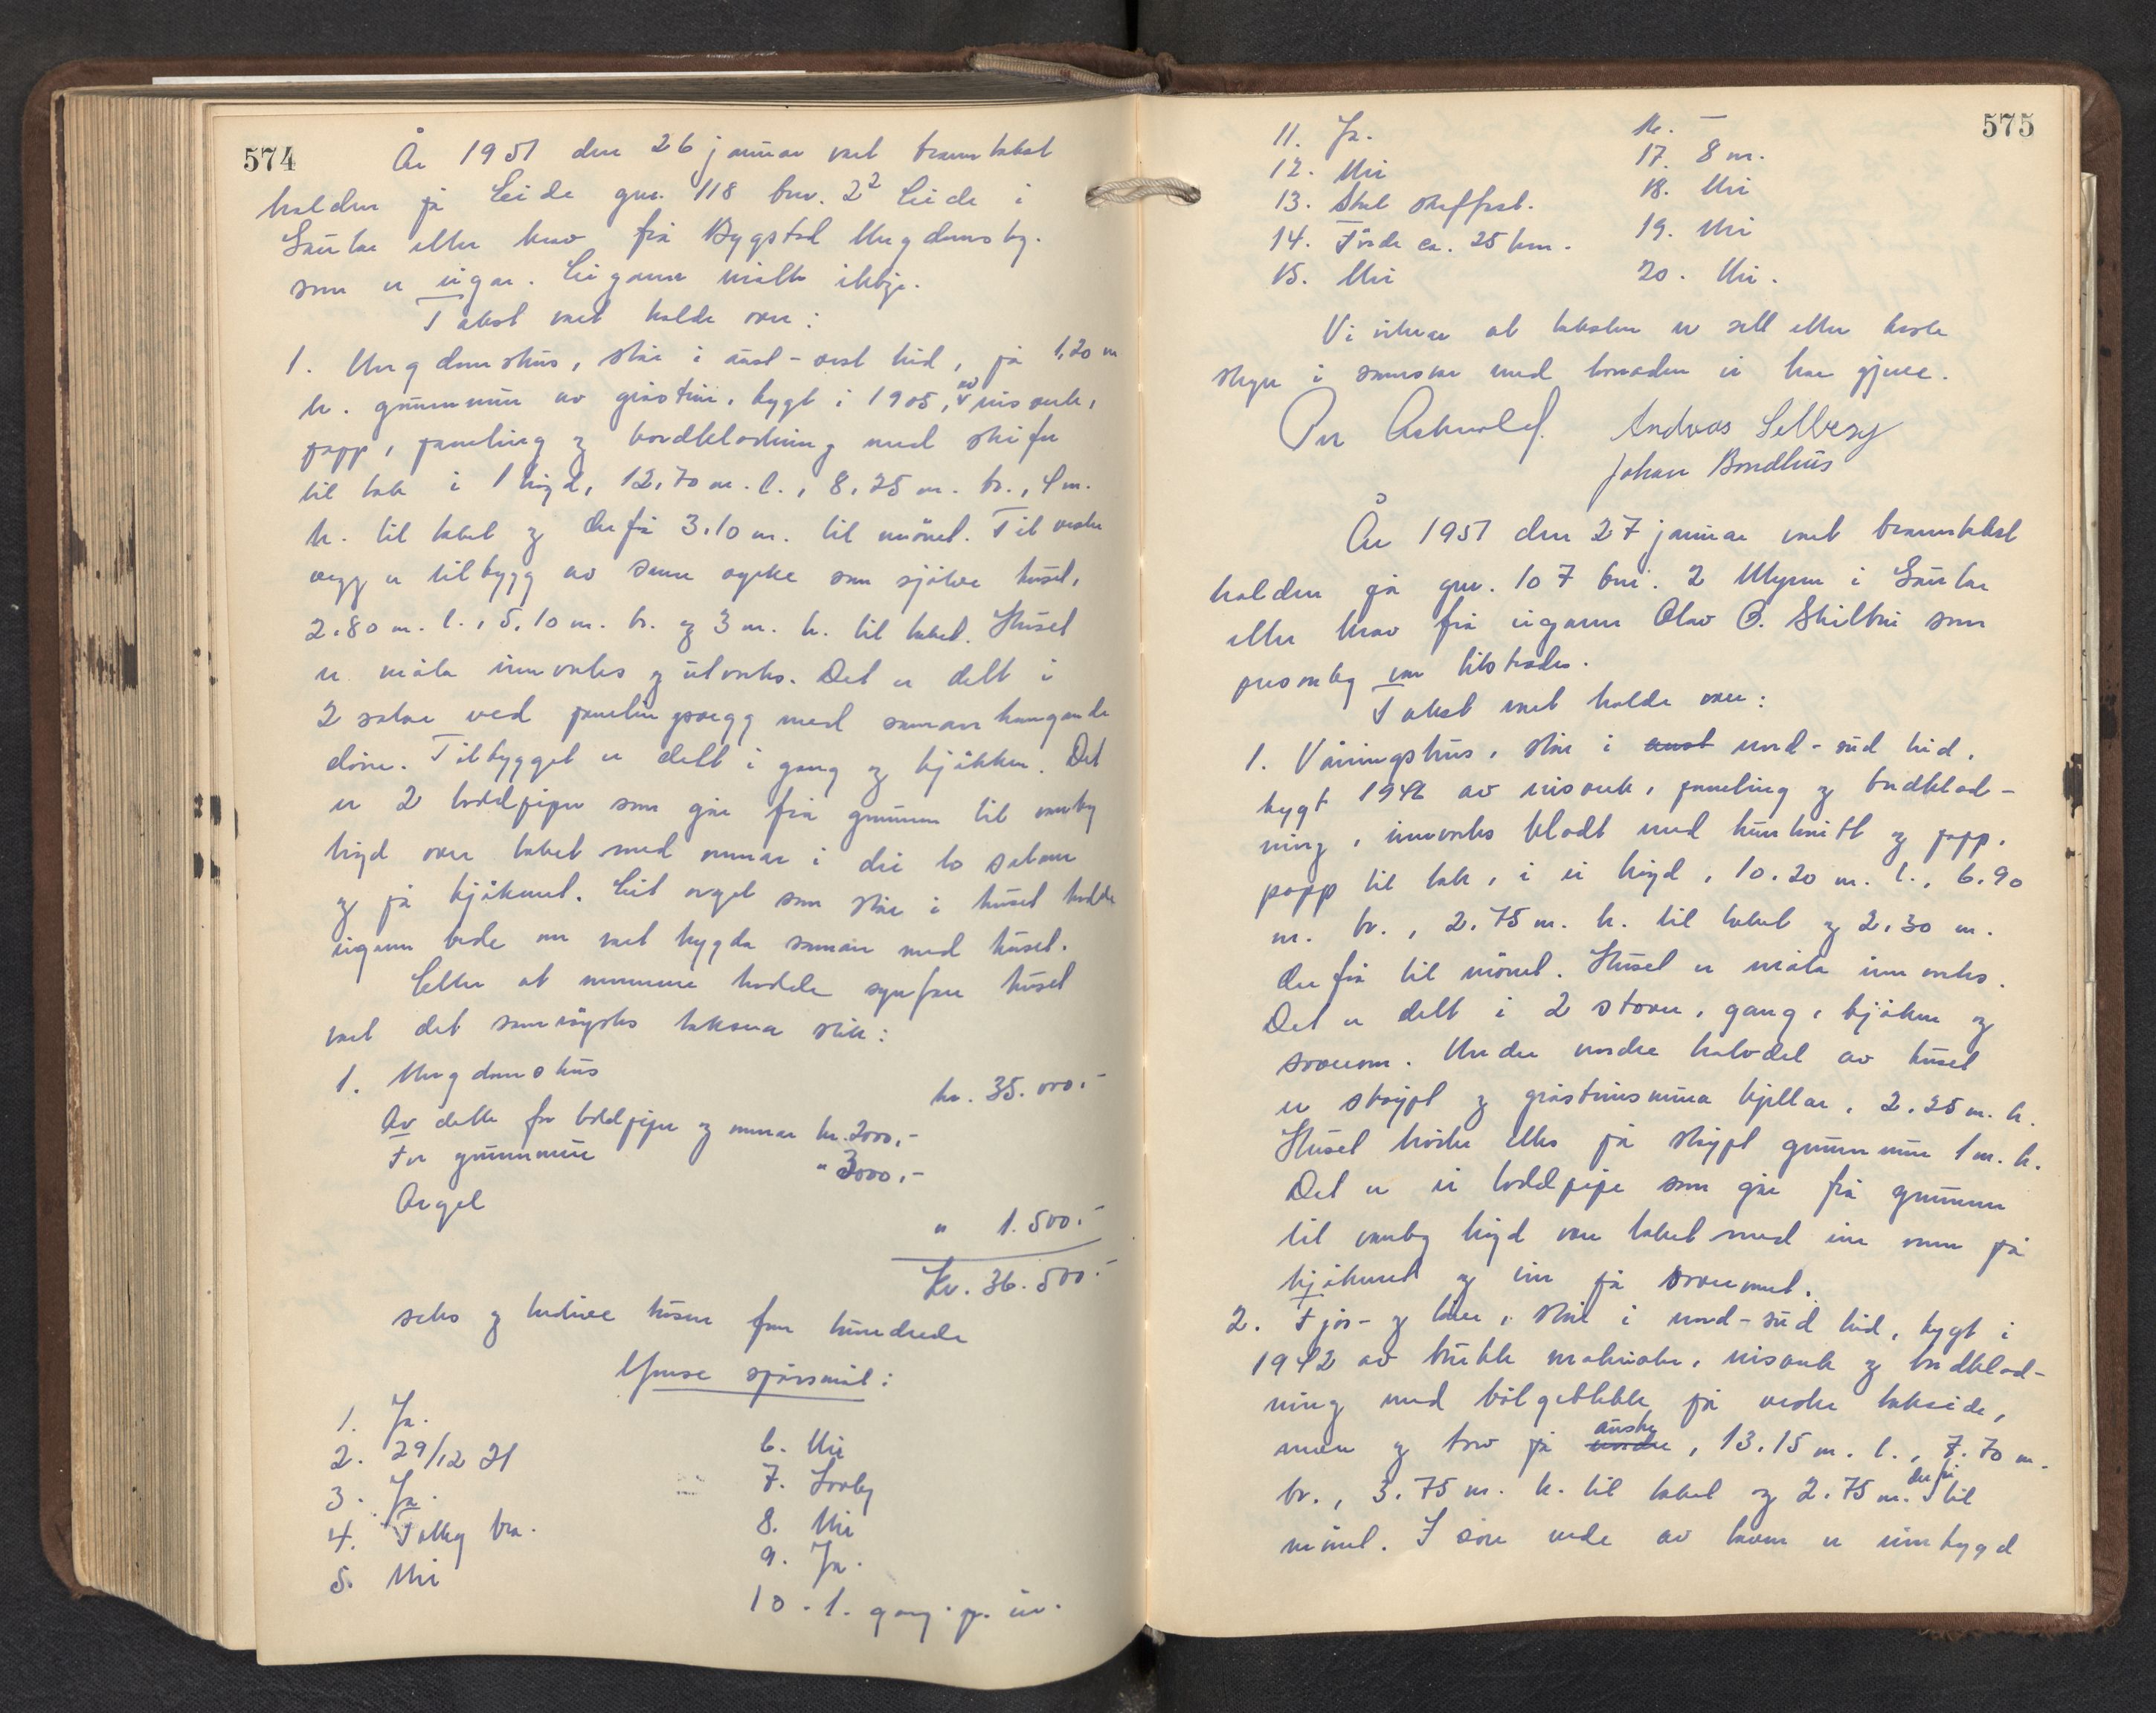 574
År 1951 den 26 januar vart branntakst
halden på Leide gnr. 118 bnr. 2² Leide i
Gaular etter krav frå Bygstad Ungdomslag
som er eigar. Eigaren møtte ikkje.
Takst vart halde over:
1. Ungdomshus, står i aust-vest leid, på 1,20 m
h. grunnmur av gråstein, bygt i 1905, av reisverk,
papp, paneling og bordkledning med skifer
til tak i 1 høgd, 12,70 m. l., 8,25 m. br., 4 m.
h. til taket og derfrå 3.10 m. til mönet. Til vestre
vegg er tilbygg av same styrke som sjölve huset,
2.80 m. l., 5,10 m. br. og 3 m. h. til taket. Huset
er måla innvortes og utvortes. Det er delt i
2 salar ved panelingsvegg med samanhangande
dörer. Tilbygget er delt i gang og kjökken. Det
er 2 teglpiper som går frå grunnen til vanleg
högd over taket med omnar i dei to salane
og på kjöknet. Eit orgel som står i huset hadde
eigaren bede om vart trygda saman med huset.
Etter at nemnda hadde synfare huset
vart det samrøystes taksera slik:
1. Ungdomshus kr. 35.000.-
Av dette for teglpiper og omnar kr. 2000,-
For grunnmur " 3000,-
Orgel " 1.500.-
Kr. 36.500.-
seks og tredive tusen fem hundrede
Ymse spörsmål:
1. Ja.
2. 29/12 21
3. Ja.
4. Tolleg bra.
5. Nei
6. Nei
7. Lovleg
8. Nei
9. Ja.
10. 1. gong. p. år.
575
11. Ja.
12. Nei
13. Skal skaffast.
14. Förde ca. 25 km.
15. Nei
16. —
17. 8 m.
18. Nei
19. Nei
20. Nei.
Vi vitnar at taksten er sett etter beste
skyn i samsvar med lovnaden vi har gjeve.
Andreas Selberg
Johan Bondhus
År 1951 den 27 januar vart branntakst
halden på gnr. 107 bnr. 2 Myren i Gaular
etter krav frå eigaren Olav O. Skilbrei som
personleg var tilstades.
Takst vart halde over:
1. Våningshus, står i aust nord-sud leid,
bygt 1942 av reisverk, paneling og bordkled-
ning, innvortes kledt med huntonitt og papp,
papp til tak, i ei högd, 10.20 m. l., 6.90
m. br., 2.75 m. h. til taket og 2.30 m.
derfrå til mönet. Huset er måla innvortes.
Det er delt i 2 stover, gang, kjöken og
soverom. Under nordre halvdel av huset
er stöypt og gråsteinsmura kjellar, 2.25 m. h.
Huset kviler elles på stöypt grunnmur 1 m. h.
Det er ei teglpipe som går frå grunnen
til vanleg högd over taket med ein omn på
kjöknet og ein på soverommet.
2. Fjös- og löe, står i nord-sud leid, bygt i
1942 av brukte materialer, reisverk og bordkled-
ning med bölgeblekk på vestre takside,
never og torv på nordre austre, 13.15 m. l., 7.70 m.
br., 3.75 m. h. til taket og 2.75 m. derfrå til
mönet. I söre ende av löen er innbygd